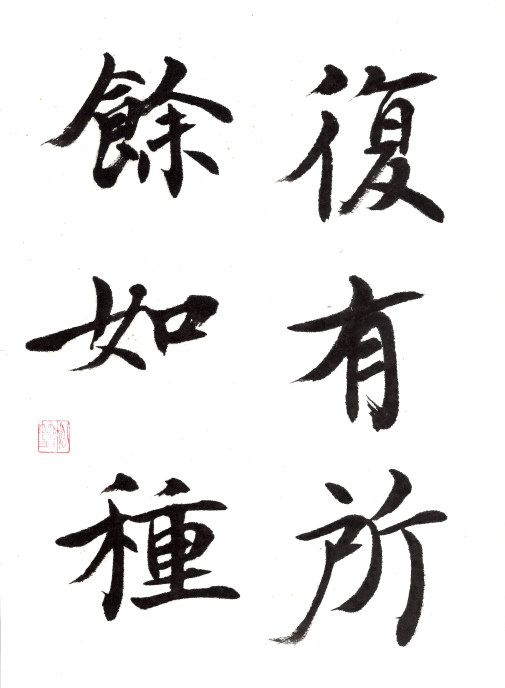 復有所
餘如種